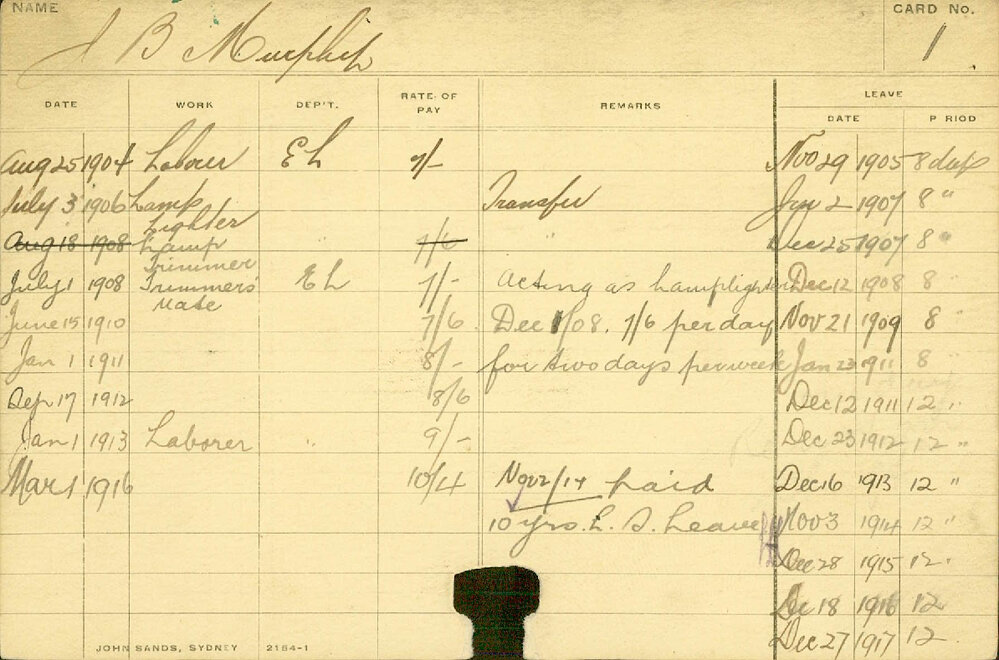 NAME CARD No.
J B Murphy 1
DATE WORK DEP'T. RATE OF PAY REMARKS LEAVE
DATE P RIOD
Aug 25 1904 Laborer E L 7/- Nov 29 1905 8 days
July 3 1906 Lamp Lighter Transfer Jan 2 1907 8 "
Aug 18 1908 Lamp Trimmer " 7/6 " Dec 25 1907 8 "
July 1 1908 Trimmers' Mate E L 7/- Acting as Lamplighter Dec 12 1908 8 "
June 15 1910 7/6 Dec 1/08. 7/6 per day Nov 21 1909 8 "
Jan 1 1911 8/- for two days per week Jan 23 1911 8 "
Sep 17 1912 8/6 Dec 12 1911 12 "
Jan 1 1913 Laborer " 9/- Dec 23 1912 12 "
Mar 1 1916 10/4 Nov 2/14 paid Dec 16 1913 12 "
10 yrs. L. S. Leave Nov 3 1914 12 "
Dec 28 1915 12 "
Dec 18 1916 12
Dec 27 1917 12
JOHN SANDS, SYDNEY 2184-1